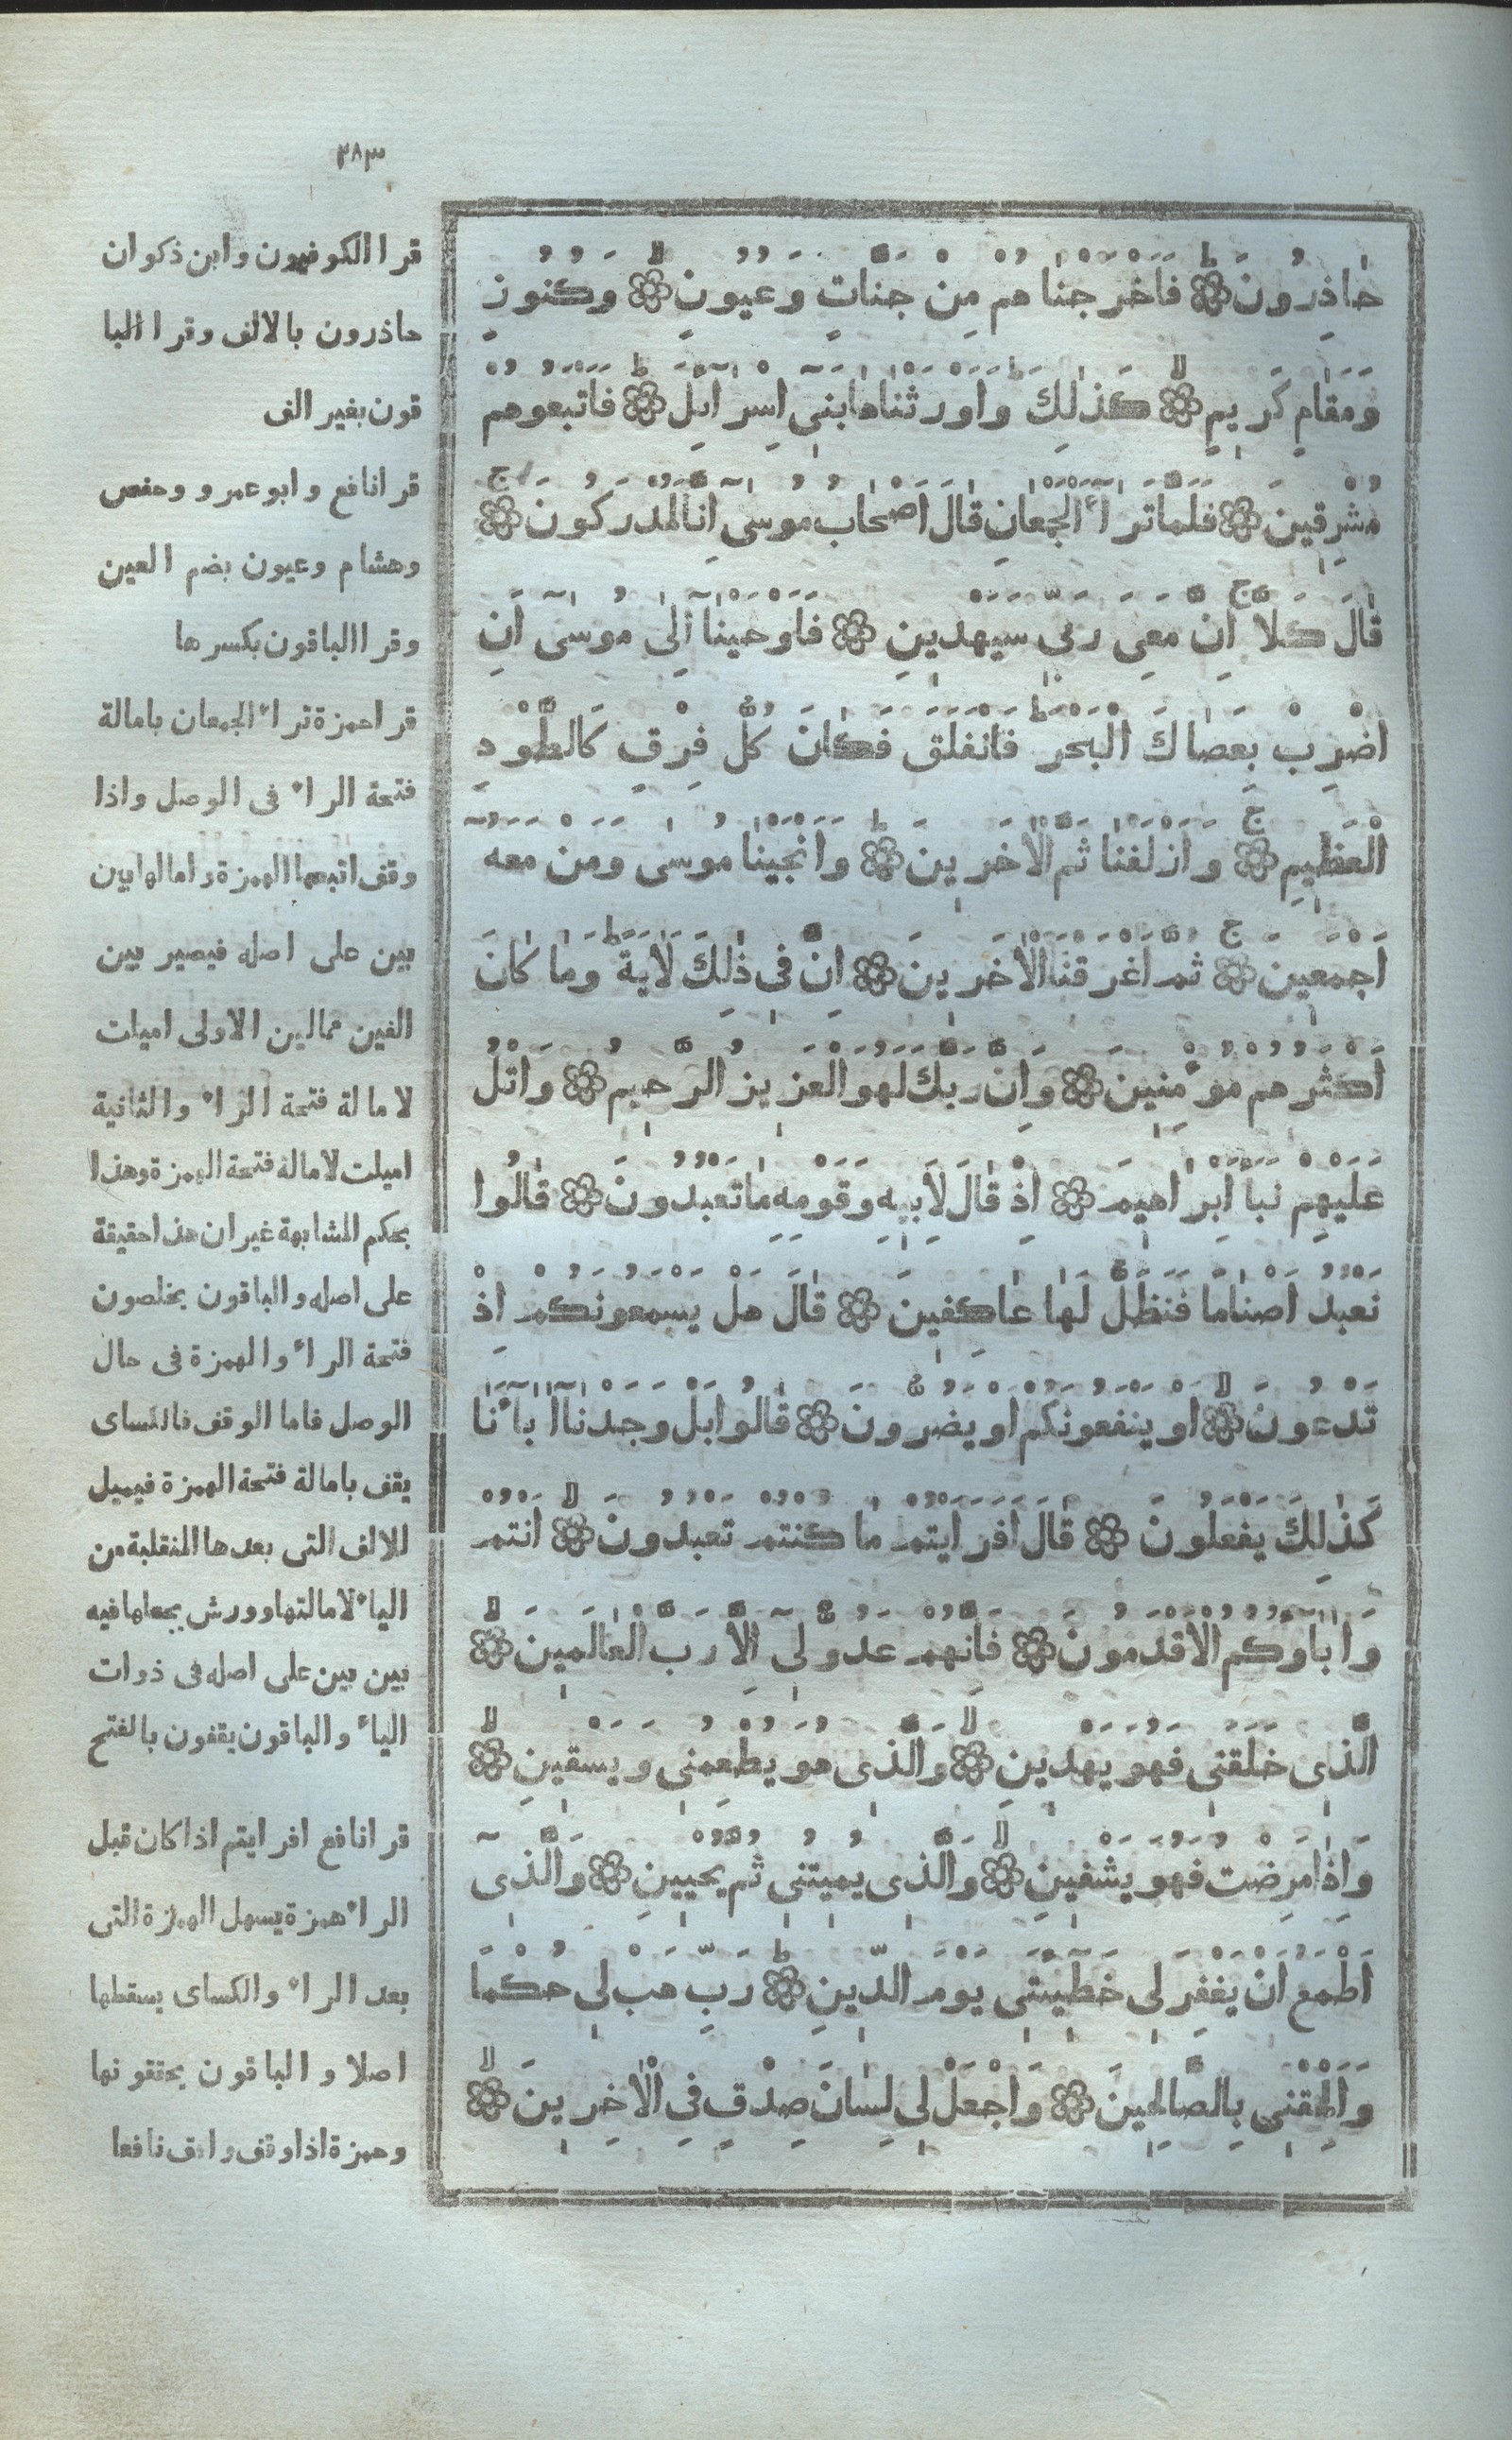 ٢٨٣
حَاذِرُونَ ۞ فَاَخْرَجْنَاهُمْ مِنْ جَنَّاتٍ وَعُيُونٍ ۞ وَكُنُوزٍ
وَمَقَامٍ كَرِيمٍ ۞ كَذٰلِكَ وَاَوْرَثْنَاهَا بَنِى اِسْرَآئِلَ ۞ فَاَتْبَعُوهُمْ
مُشْرِقِينَ ۞ فَلَمَّا تَرَاءَ الْجَمْعَانِ قَالَ اَصْحَابُ مُوسَى اِنَّا لَمُدْرَكُونَ ۞
قَالَ كَلَّا اِنَّ مَعِىَ رَبِّى سَيَهْدِينِ ۞ فَاَوْحَيْنَا اِلٰى مُوسٰى اَنِ
اضْرِبْ بِعَصَاكَ الْبَحْرَ فَانْفَلَقَ فَكَانَ كُلُّ فِرْقٍ كَالطَّوْدِ
الْعَظِيمِ ۞ وَاَزْلَفْنَا ثَمَّ الْاٰخَرِينَ ۞ وَاَنْجَيْنَا مُوسٰى وَمَنْ مَعَهُ
اَجْمَعِينَ ۞ ثُمَّ اَغْرَقْنَا الْاٰخَرِينَ ۞ اِنَّ فِى ذٰلِكَ لَاٰيَةً وَمَا كَانَ
اَكْثَرُهُمْ مُوْمِنِينَ ۞ وَاِنَّ رَبَّكَ لَهُوَ الْعَزِيزُ الرَّحِيمُ ۞ وَاتْلُ
عَلَيْهِمْ نَبَاَ اِبْرَاهِيمَ ۞ اِذْ قَالَ لِاَبِيهِ وَقَوْمِهِ مَا تَعْبُدُونَ ۞ قَالُوا
نَعْبُدُ اَصْنَامًا فَنَظَلُّ لَهَا عَاكِفِينَ ۞ قَالَ هَلْ يَسْمَعُونَكُمْ اِذْ
تَدْعُونَ ۞ اَوْ يَنْفَعُونَكُمْ اَوْ يَضُرُّونَ ۞ قَالُوا بَلْ وَجَدْنَا اٰبَاءَنَا
كَذٰلِكَ يَفْعَلُونَ ۞ قَالَ اَفَرَاَيْتُمْ مَا كُنْتُمْ تَعْبُدُونَ ۞ اَنْتُمْ
وَاٰبَاوُكُمُ الْاَقْدَمُونَ ۞ فَاِنَّهُمْ عَدُوٌّ لِى اِلَّا رَبَّ الْعَالَمِينَ ۞
الَّذِى خَلَقَنِى فَهُوَ يَهْدِينِ ۞ وَالَّذِى هُوَ يُطْعِمُنِى وَيَسْقِينِ ۞
وَاِذَا مَرِضْتُ فَهُوَ يَشْفِينِ ۞ وَالَّذِى يُمِيتُنِى ثُمَّ يُحْيِينِ ۞ وَالَّذِى
اَطْمَعُ اَنْ يَغْفِرَ لِى خَطِيئَتِى يَوْمَ الدِّينِ ۞ رَبِّ هَبْ لِى حُكْمًا
وَاَلْحِقْنِى بِالصَّالِحِينَ ۞ وَاجْعَلْ لِى لِسَانَ صِدْقٍ فِى الْاٰخِرِينَ ۞
قرا الكوفيون وابن ذكوان
حاذرون بالالف وقرا البا
قون بغير الف
قرا نافع وابو عمرو وحفص
وهشام وعيون بضم العين
وقرا الباقون بكسرها
قرا حمزة تراء الجمعان بامالة
فتحة الراء فى الوصل واذا
وقف اتبعها الهمزة وامالها بين
بين على اصله فيصير بين
الفين ممالين الاولى اميلت
لامالة فتحة الراء والثانية
اميلت لامالة فتحة الهمزة وهذا
بحكم المشابهة غير ان هذا حقيقة
على اصله والباقون يخلصون
فتحة الراء والهمزة فى حال
الوصل فاما الوقف فالكساى
يقف بامالة فتحة الهمزة فيميل
للالف التى بعدها المنقلبة من
الياء لامالتها وورش يجعلها فيه
بين بين على اصله فى ذوات
الياء والباقون يقفون بالفتح
قرا نافع افرايتم اذا كان قبل
الراء همزة يسهل الهمزة التى
بعد الراء والكساى يسقطها
اصلا والباقون يحققونها
وحمزة اذا وقف وافق نافعا